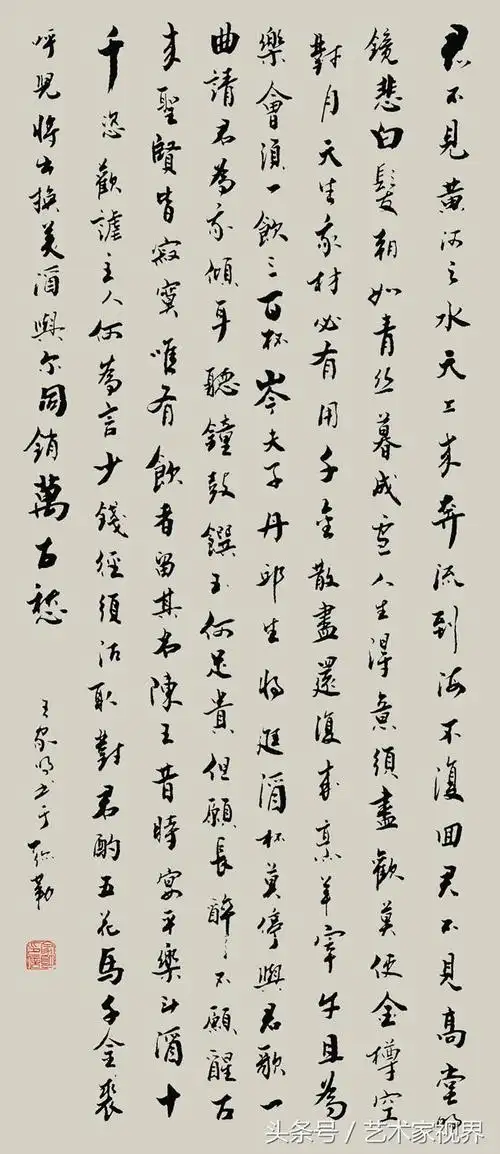 君不見黃河之水天上来奔流到海不復回君不見高堂明
鏡悲白髮朝如青丝暮成雪人生得意須盡歡莫使金樽空
對月天生我材必有用千金散盡還復来烹羊宰牛且為
樂會須一飲三百杯岑夫子丹邱生将進酒杯莫停與君歌一
曲請君為我傾耳聽鐘鼓饌玉何足貴但願長醉不願醒古
来聖賢皆寂寞唯有飲者留其名陳王昔時宴平樂斗酒十
千恣歡謔主人何為言少錢徑須沽取對君酌五花馬千金裘
呼兒將出換美酒與尔同銷萬古愁
王家明书于弥勒
头条号／艺术家视界